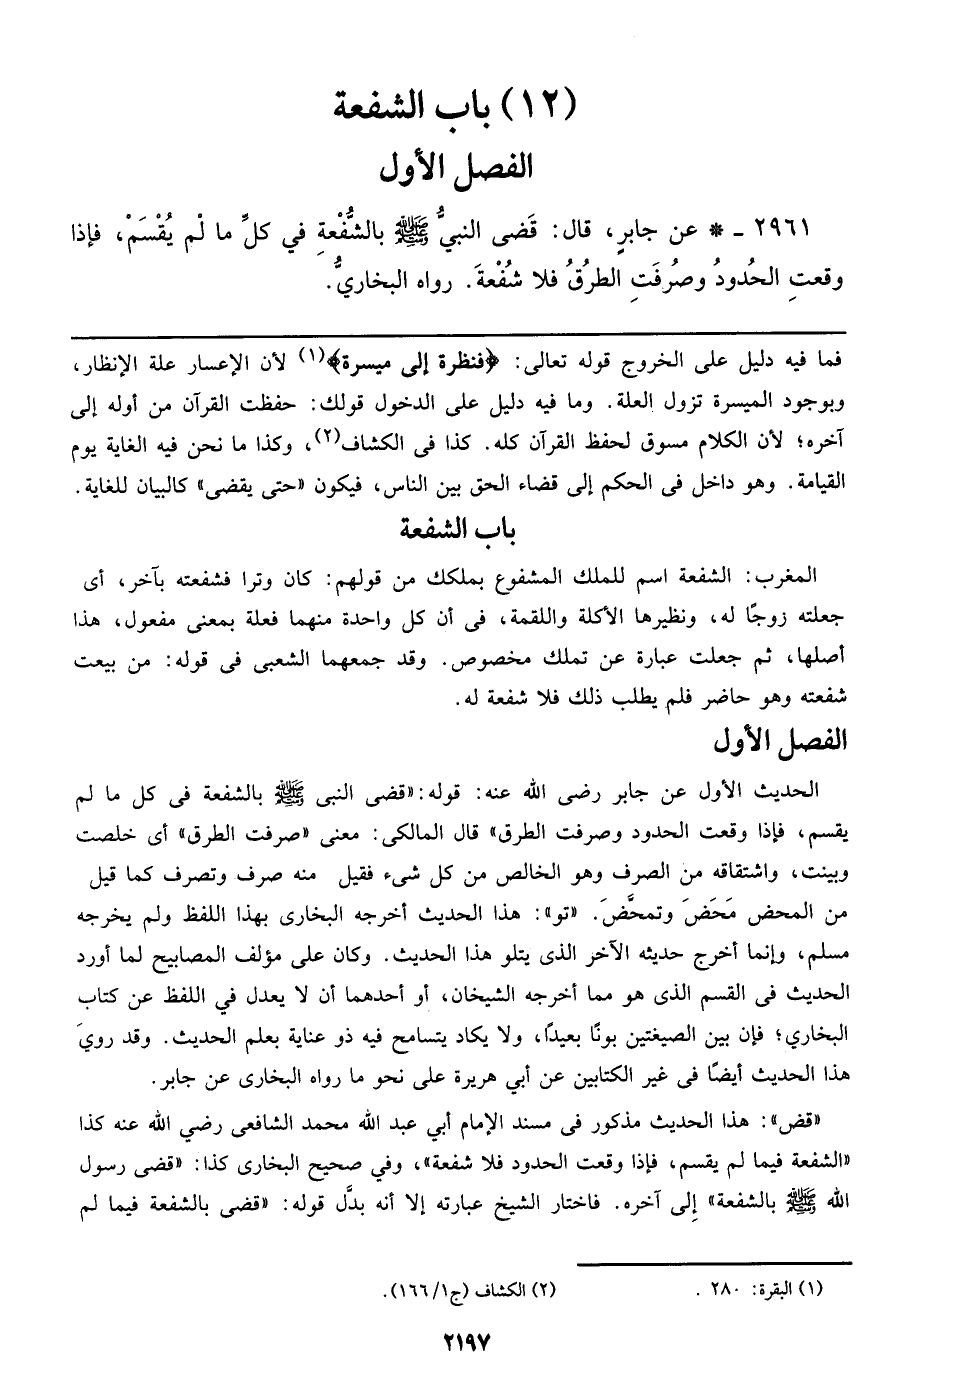 (١٢) باب الشفعة
الفصل الأول
٢٩٦١ ـ * عن جابرٍ، قال: قَضى النبيُّ ﷺ بالشُّفْعةِ في كلِّ ما لْم يُقْسَمْ، فإذا
وقعتِ الحُدودُ وصُرِفَتِ الطرُقُ فلا شُفْعةَ. رواه البخاريُّ.
فما فيه دليل على الخروج قوله تعالى: ﴿فنظرة إلى ميسرة﴾(١) لأن الإعسار علة الإنظار،
وبوجود الميسرة تزول العلة. وما فيه دليل على الدخول قولك: حفظت القرآن من أوله إلى
آخره؛ لأن الكلام مسوق لحفظ القرآن كله. كذا فى الكشاف(٢)، وكذا ما نحن فيه الغاية يوم
القيامة. وهو داخل فى الحكم إلى قضاء الحق بين الناس، فيكون «حتى يقضى» كالبيان للغاية.
باب الشفعة
المغرب: الشفعة اسم للملك المشفوع بملكك من قولهم: كان وترا فشفعته بآخر، أى
جعلته زوجًا له، ونظيرها الأكلة واللقمة، فى أن كل واحدة منهما فعلة بمعنى مفعول، هذا
أصلها، ثم جعلت عبارة عن تملك مخصوص. وقد جمعهما الشعبى فى قوله: من بيعت
شفعته وهو حاضر فلم يطلب ذلك فلا شفعة له.
الفصل الأول
الحديث الأول عن جابر رضى الله عنه: قوله:«قضى النبى ﷺ بالشفعة فى كل ما لم
يقسم، فإذا وقعت الحدود وصرفت الطرق» قال المالكى: معنى «صرفت الطرق» أى خلصت
وبينت، واشتقاقه من الصرف وهو الخالص من كل شىء فقيل منه صرف وتصرف كما قيل
من المحض مَحَضَ وتمحَّضَ. «تو»: هذا الحديث أخرجه البخارى بهذا اللفظ ولم يخرجه
مسلم، وإنما أخرج حديثه الآخر الذى يتلو هذا الحديث. وكان على مؤلف المصابيح لما أورد
الحديث فى القسم الذى هو مما أخرجه الشيخان، أو أحدهما أن لا يعدل في اللفظ عن كتاب
البخاري؛ فإن بين الصيغتين بونًا بعيدًا، ولا يكاد يتسامح فيه ذو عناية بعلم الحديث. وقد رويَ
هذا الحديث أيضًا فى غير الكتابين عن أبي هريرة على نحو ما رواه البخارى عن جابر.
«قض»: هذا الحديث مذكور فى مسند الإمام أبي عبد الله محمد الشافعى رضي الله عنه كذا
«الشفعة فيما لم يقسم، فإذا وقعت الحدود فلا شفعة»، وفي صحيح البخارى كذا: «قضى رسول
الله ﷺ بالشفعة» إِلى آخره. فاختار الشيخ عبارته إلا أنه بدَّل قوله: «قضى بالشفعة فيما لم
(١) البقرة: ٢٨٠ .
(٢) الكشاف (ج١/١٦٦).
٢١٩٧